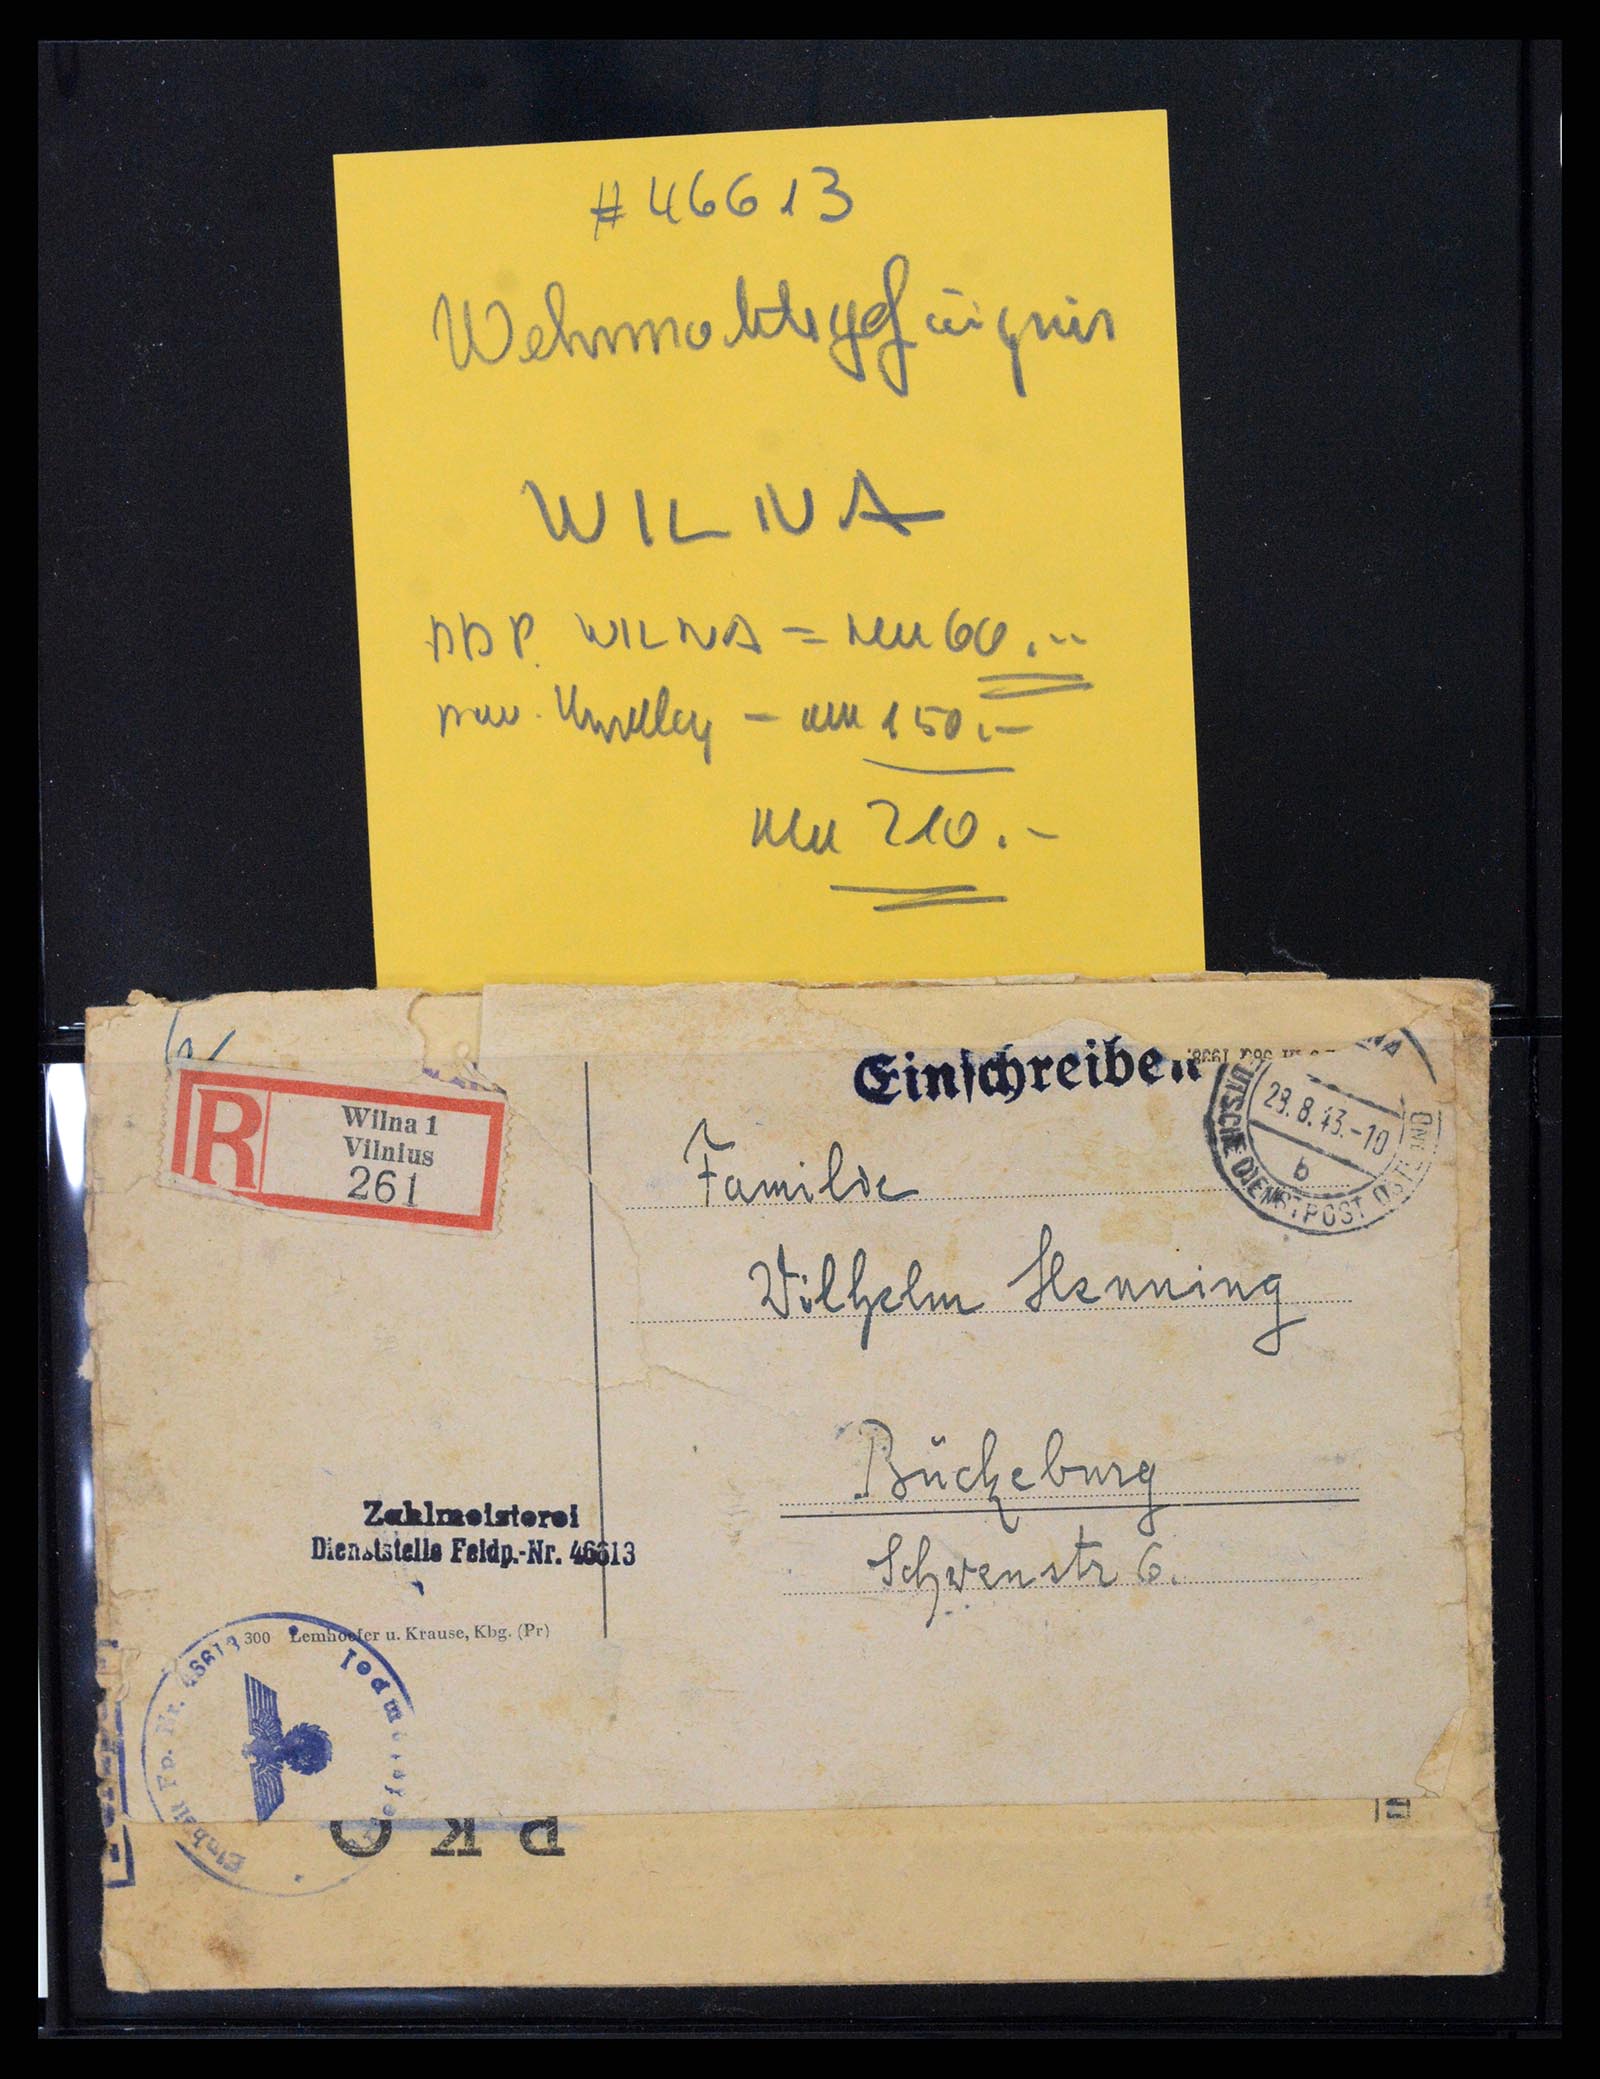 #46613
Wehrmachtsgefängnis
WILNA
DDP. WILNA = 60.--
150.-
210.-
Einschreiben
Wilna 1
Vilnius
R
261
23.8.43.-10
b
DEUTSCHE DIENSTPOST OSTLAND
Familie
Wilhelm Henning
Bückeburg
Schwenstr 6.
Zahlmeisterei
Dienststelle Feldp.-Nr. 46613
300 Lemhoefer u. Krause, Kbg. (Pr)
Einheit Fp. Nr. 46613
DKO